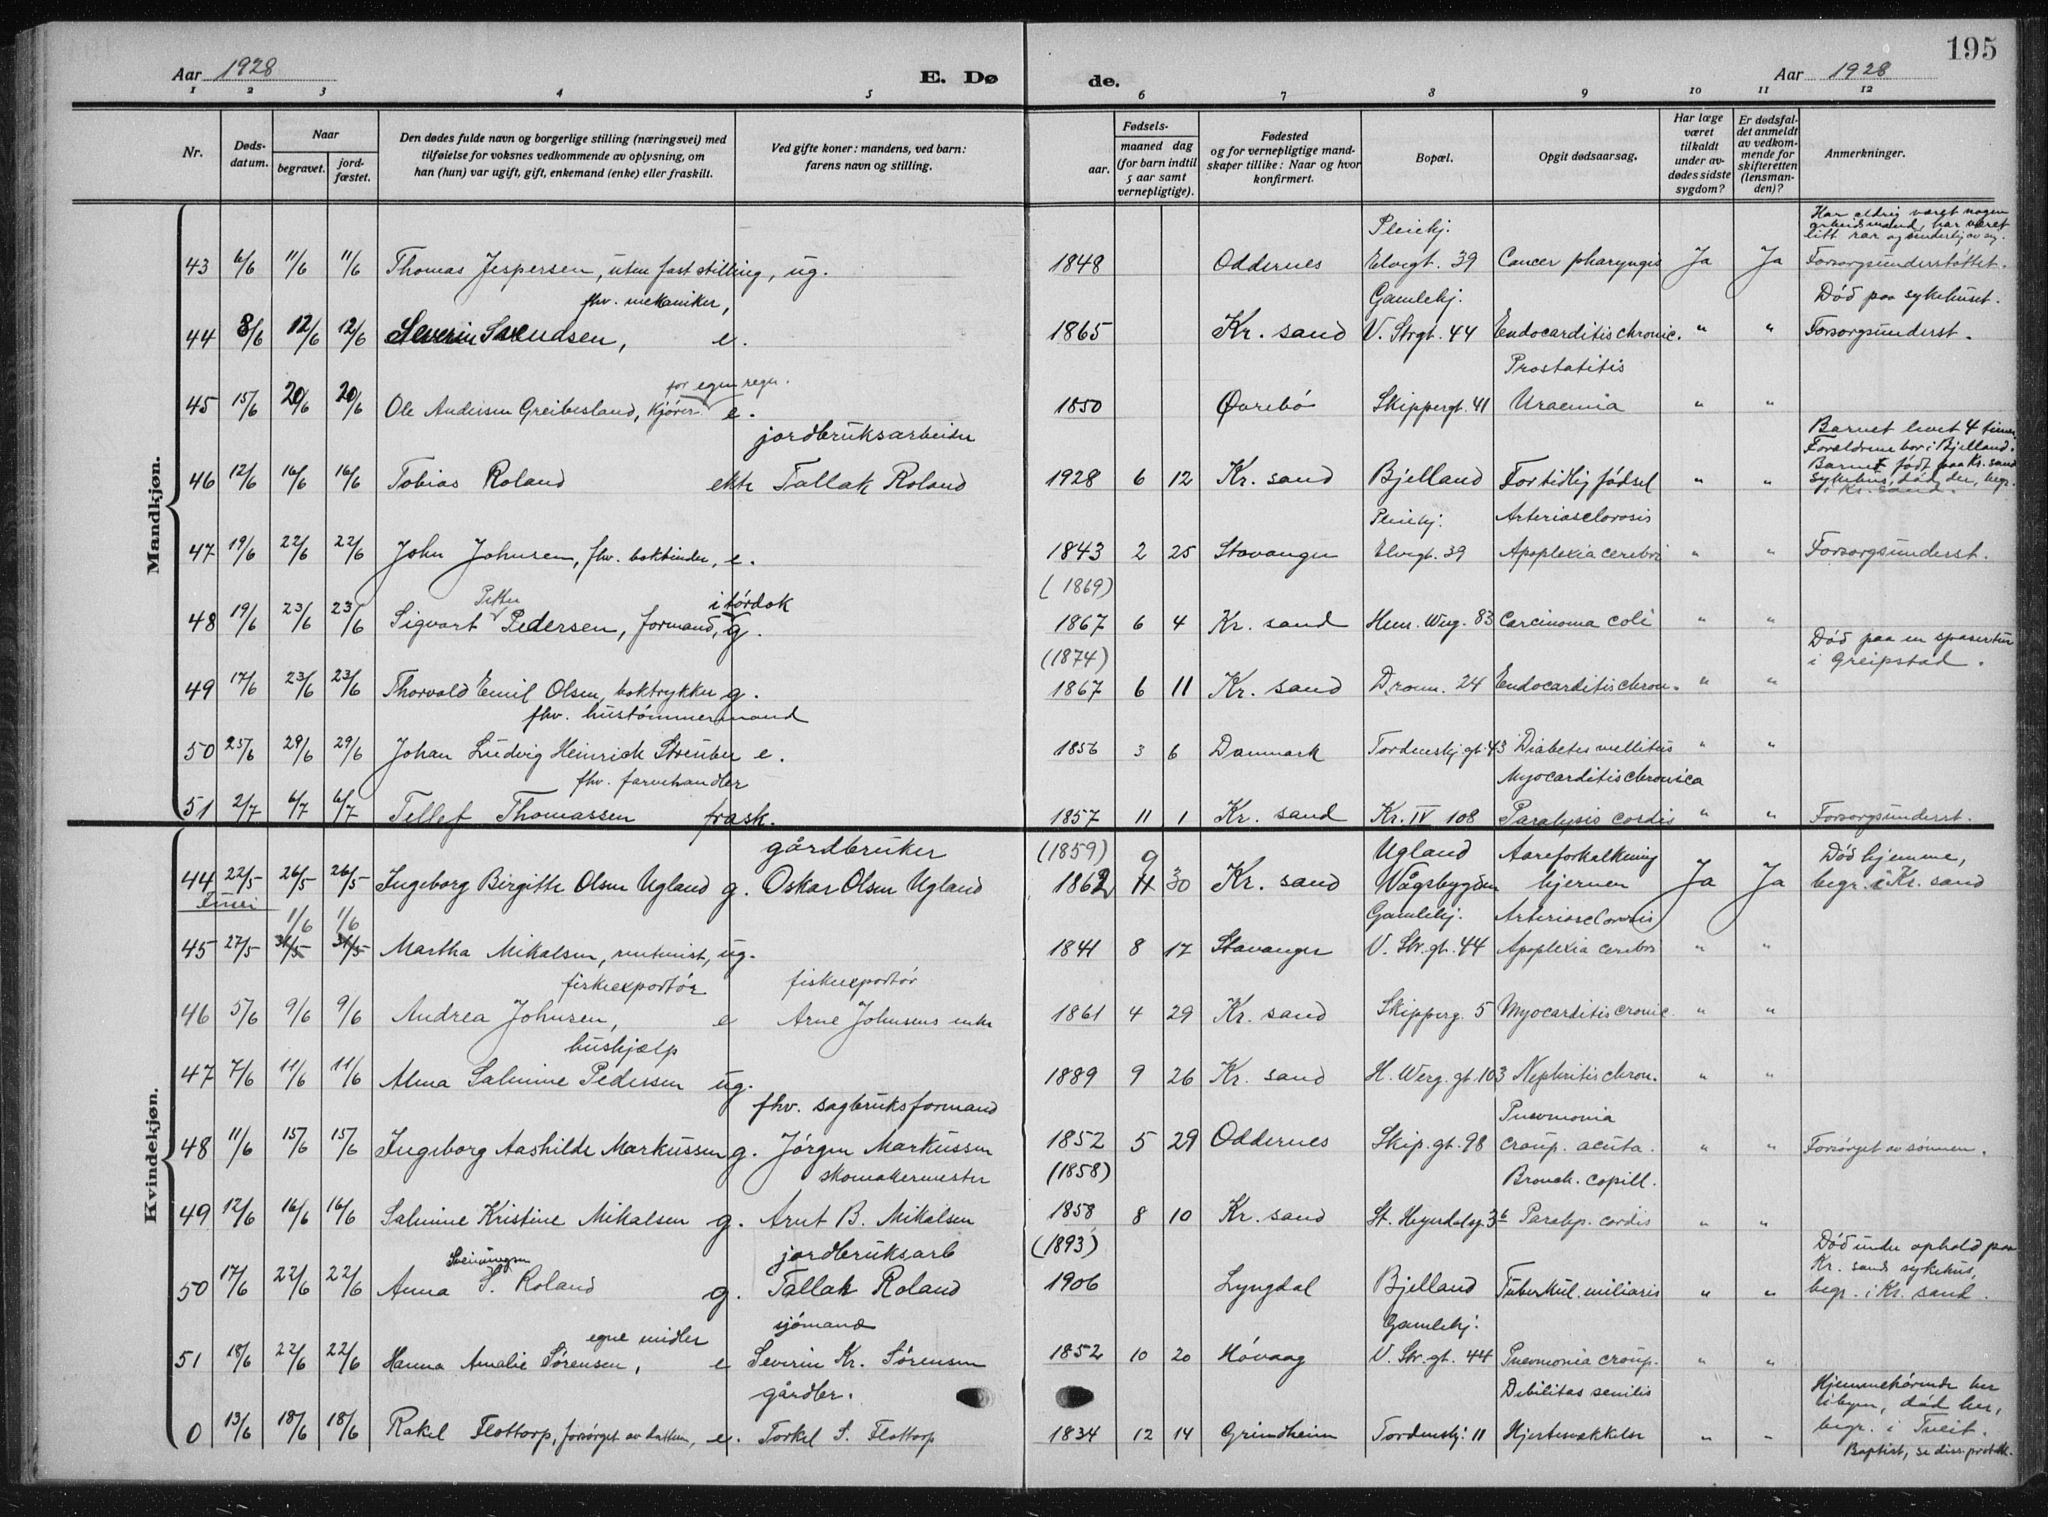 195
Aar 1928 E. Dø de. Aar 1928
1 2 3 4 5 6 7 8 9 10 11 12
Nr.
Døds-
datum.
Naar
begravet.
jord-
fæstet.
Den dødes fulde navn og borgerlige stilling (næringsvei) med
tilføielse for voksnes vedkommende av oplysning, om
han (hun) var ugift, gift, enkemand (enke) eller fraskilt.
Ved gifte koner: mandens, ved barn:
farens navn og stilling.
aar.
Fødsels-
maaned dag
(for barn indtil
5 aar samt
vernepligtige).
Fødested
og for vernepligtige mand-
skaper tillike: Naar og hvor
konfirmert.
Bopæl.
Opgit dødsaarsag.
Har læge
været
tilkaldt
under av-
dødes sidste
sygdom?
Er dødsfal-
det anmeldt
av vedkom-
mende for
skifteretten
(lensman-
den)?
Anmerkninger.
Mandkjøn.
Har aldrig været nogen
arbeidsmand, har været
litt rar og
Pleiehj.
43 6/6 11/6 11/6 Thomas Jespersen, uten fast stilling, ug. 1848 Oddernes Elvegt. 39 Cancer pharyngis Ja Ja Forsorgsunderstøttet.
fhv. mekaniker, Gamlehj. Død paa sykehuset.
44 8/6 12/6 12/6 Severin Svendsen, e. 1865 Kr. sand V. Strgt. 44 Endocarditis chronic. " " Forsorgsunderst.
for egen regn. Prostatitis
45 15/6 20/6 20/6 Ole Andersen Greibesland, kjører e. 1850 Øvrebø Skippergt. 41 Uraemia " "
jordbruksarbeider Barnet levet 4 timer
Forældrene bor i Bjelland.
Barnet født paa Kr. sand
46 12/6 16/6 16/6 Tobias Roland ekte Tallak Roland 1928 6 12 Kr. sand Bjelland For tidlig fødsel " " sykehus, død der, begr.
i Kr. sand.
Pleiehj. Arteriosclorosis
47 19/6 22/6 22/6 John Johnsen, fhv. bokbinder, e. 1843 2 25 Stavanger Elvegt. 39 Apoplexia cerebri " " Forsorgsunderst.
Petter i tørdok (1869)
48 19/6 23/6 23/6 Sigvart Pedersen, formand, g. 1867 6 4 Kr. sand Henr. Werg. 83 Carcinoma coli " "
(1874) Død paa en spasertur
i Greipstad.
49 17/6 23/6 23/6 Thorvald Emil Olsen, boktrykker g. 1867 6 11 Kr. sand Dronn. 24 Endocarditis chron. " "
fhv. hustømmermand
50 25/6 29/6 29/6 Johan Ludvig Heinrich Streuber e. 1856 3 6 Danmark Tordenskj. gt. 43 Diabetes mellitus " "
fhv. farvehandler Myocarditis chronica
51 2/7 6/7 6/7 Tellef Thomassen frask. 1857 11 1 Kr. sand Kr. IV 108 Paralysis cordis " " Forsorgsunderst.
Kvindekjøn.
gårdbruker (1859) 9 Ugland Aareforkalkning Død hjemme,
44 22/5 26/5 26/5 Ingeborg Birgitte Olsen Ugland g. Oskar Olsen Ugland 1862 11 30 Kr. sand Vågsbygden hjernen Ja Ja begr. i Kr. sand
1/6 1/6 Gamlehj. Arteriosclorosis
45 27/5 31/5 31/5 Martha Mikalsen, rentenist, ug. 1841 8 17 Stavanger V. Str. gt. 44 Apoplexia cerebri " "
fiskeexportør fiskeexportør
46 5/6 9/6 9/6 Andrea Johnsen, e Arne Johnsens enke 1861 4 29 Kr. sand Skipperg. 5 Myocarditis cronic. " "
hushjælp
47 7/6 11/6 11/6 Alma Salmine Pedersen ug. 1889 9 26 Kr. sand H. Werg. gt. 103 Nephritis chron. " "
fhv. sagbruksformand Pneumonia
48 11/6 15/6 15/6 Ingeborg Aashilde Markussen g. Jørgen Markussen 1852 5 29 Oddernes Skip. gt. 98 croup. acuta. " " Forsørget av sønnen.
skomakermester (1858) Bronch. capill.
49 12/6 16/6 16/6 Salmine Kristine Mikalsen g. Arnt B. Mikalsen 1858 8 10 Kr. sand St. Heyerdalsg. 36 Paralyp. cordis " "
Seiningsen jordbruksarb (1893) Død under ophold paa
Kr. sands sykehus,
50 17/6 22/6 22/6 Anna S. Roland g. Tallak Roland 1906 Lyngdal Bjelland Tuberkul. miliaris " " begr. i Kr. sand.
egne midler sjømand Gamlehj.
51 18/6 22/6 22/6 Hanna Amalie Sørensen, e Severin Kr. Sørensen 1852 10 20 Høvaag V. Str. gt. 44 Pneumonia croup. " "
gårdbr. Debilitas senilis Hjemmehørende her
i byen, død her,
0 13/6 18/6 18/6 Rakel Flottorp, forsørget av datteren, e. Torkel S. Flottorp 1834 12 14 Grindheim Tordenskj. 11 Hjertesvækkelse " " begr. i Tveit.
Baptist, se diss. protok.